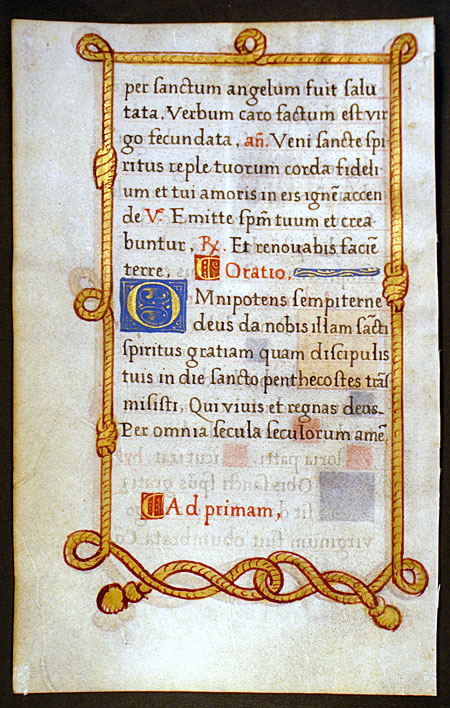 per sanctum angelum fuit salu
tata. Verbum caro factum est vir
go fecundata. añ. Veni sancte spi
ritus reple tuorum corda fideli
um et tui amoris in eis ignē accen
de V. Emitte spm̄ tuum et crea
buntur, R. Et renouabis faciē
terre. Oratio.
OMnipotens sempiterne
deus da nobis illam sācti
spiritus gratiam quam discipulis
tuis in die sancto penthecostes trās
misisti, Qui viuis et regnas deus.
Per omnia secula seculorum amē.
Ad primam,